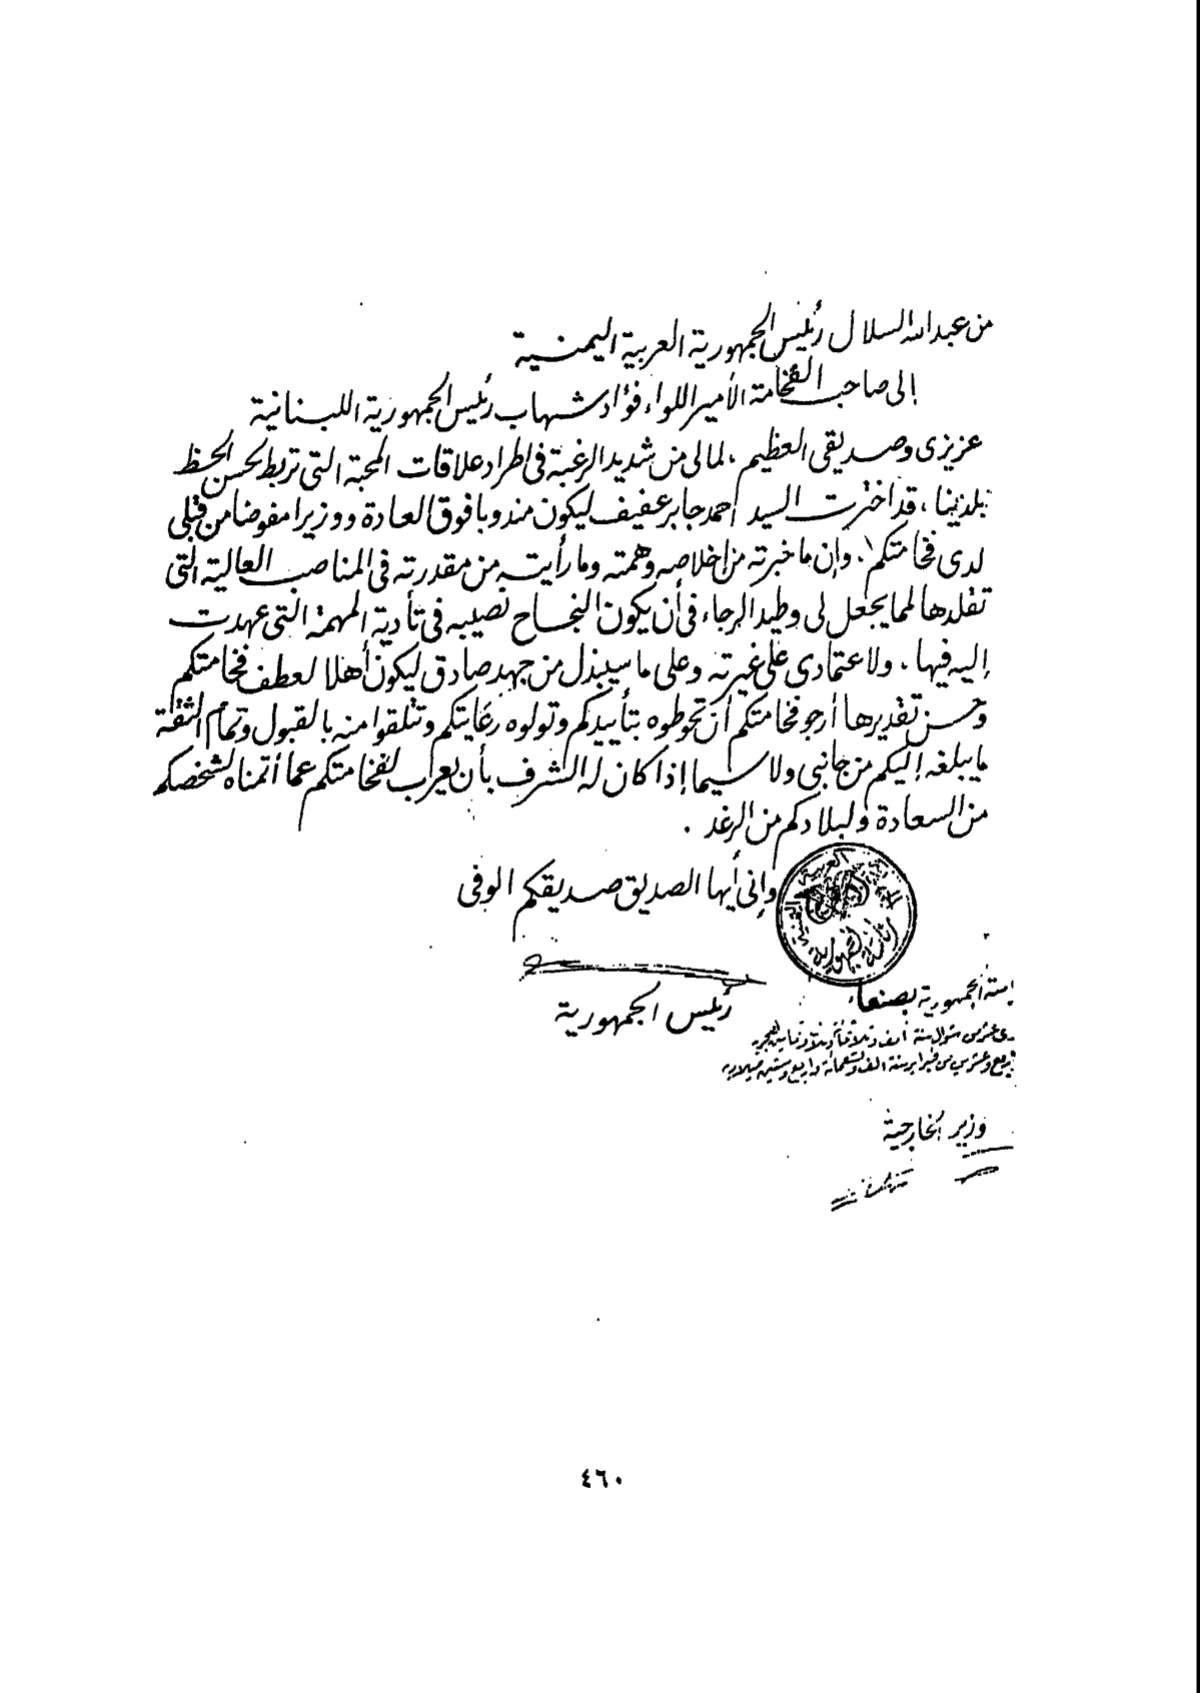 من عبدالله السلال رئيس الجمهورية العربية اليمنية
إلى صاحب الفخامة الأمير اللواء فؤاد شهاب رئيس الجمهورية اللبنانية
عزيزى وصديقى العظيم ، لما لى من شديد الرغبة فى اطراد علاقات المحبة التى تربط لحسن الحظ
بلدينا ، قد اخترت السيد أحمد جابر عفيف ليكون مندوبا فوق العادة ووزيرا مفوضا من قبلى
لدى فخامتكم ، وإن ما خبرته من إخلاصه وهمته وما رأيته من مقدرته فى المناصب العالية التى
تقلدها لمما يجعل لى وطيد الرجاء فى أن يكون النجاح نصيبه فى تأدية المهمة التى عهدت
إليه فيها . ولاعتمادى على غيرته وعلى ما سيبذل من جهد صادق ليكون أهلا لعطف فخامتكم
وحسن تقديرها أرجو فخامتكم أن تحوطوه بتأييدكم وتولوه رعايتكم وتتلقوا منه بالقبول وتمام الثقة
ما يبلغه إليكم من جانبى ولا سيما إذا كان له الشرف بأن يعرب لفخامتكم عما أتمناه لشخصكم
من السعادة ولبلادكم من الرغد .
وإنى أيها الصديق صديقكم الوفى
رئيس الجمهورية
الجمهورية بصنعاء
عشر من شوال سنة ألف وثلاثمائة وثلاث وثمانين هجرية
وعشرين من فبراير سنة ألف وتسعمائة وأربع وستين ميلادية
وزير الخارجية
٤٦٠